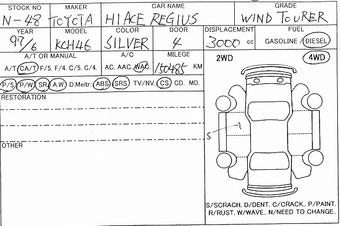 STOCK NO MAKER CAR NAME GRADE
N-48 TOYOTA HIACE REGIUS WIND TOURER
YEAR MODEL COLOR DOOR DISPLACEMENT FUEL
97/6 KCH46 SILVER 4 3000 cc GASOLINE / DIESEL
A/T OR MANUAL A/C MILEGE
A/T CA/T F/5. F/4. C/5. C/4. AC. AAC. WAC 150485 KM
P/S P/W SR A.W D.Meitr. ABS SRS TV/NV. CS CD. MD.
2WD 4WD
RESTORATION
S
OTHER
S/SCRACH. D/DENT. C/CRACK. P/PAINT.
R/RUST. W/WAVE. N/NEED TO CHANGE.